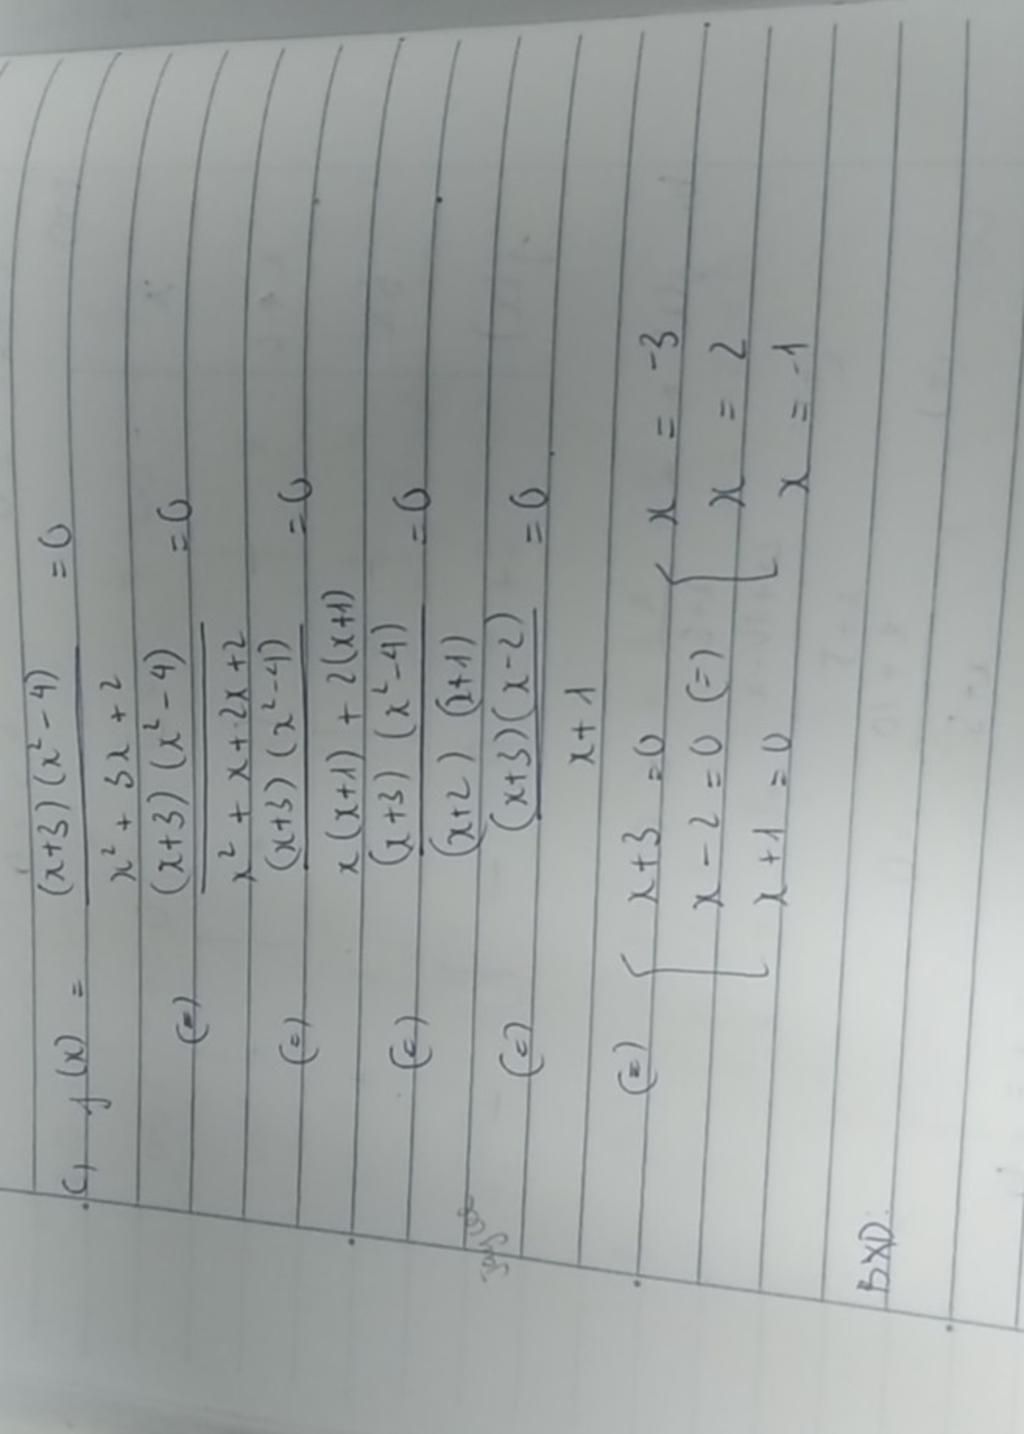 c, f(x) = (x+3)(x²-4) / x² + 3x + 2 = 0
(=) (x+3)(x²-4) / x² + x + 2x + 2 = 0
(=) (x+3)(x²-4) / x(x+1) + 2(x+1) = 0
(=) (x+3)(x²-4) / (x+2)(x+1) = 0
(=) (x+3)(x-2) / x+1 = 0
(=) { x+3 = 0 { x = -3
x-2 = 0 (=) x = 2
x+1 = 0 x = -1
BXD: